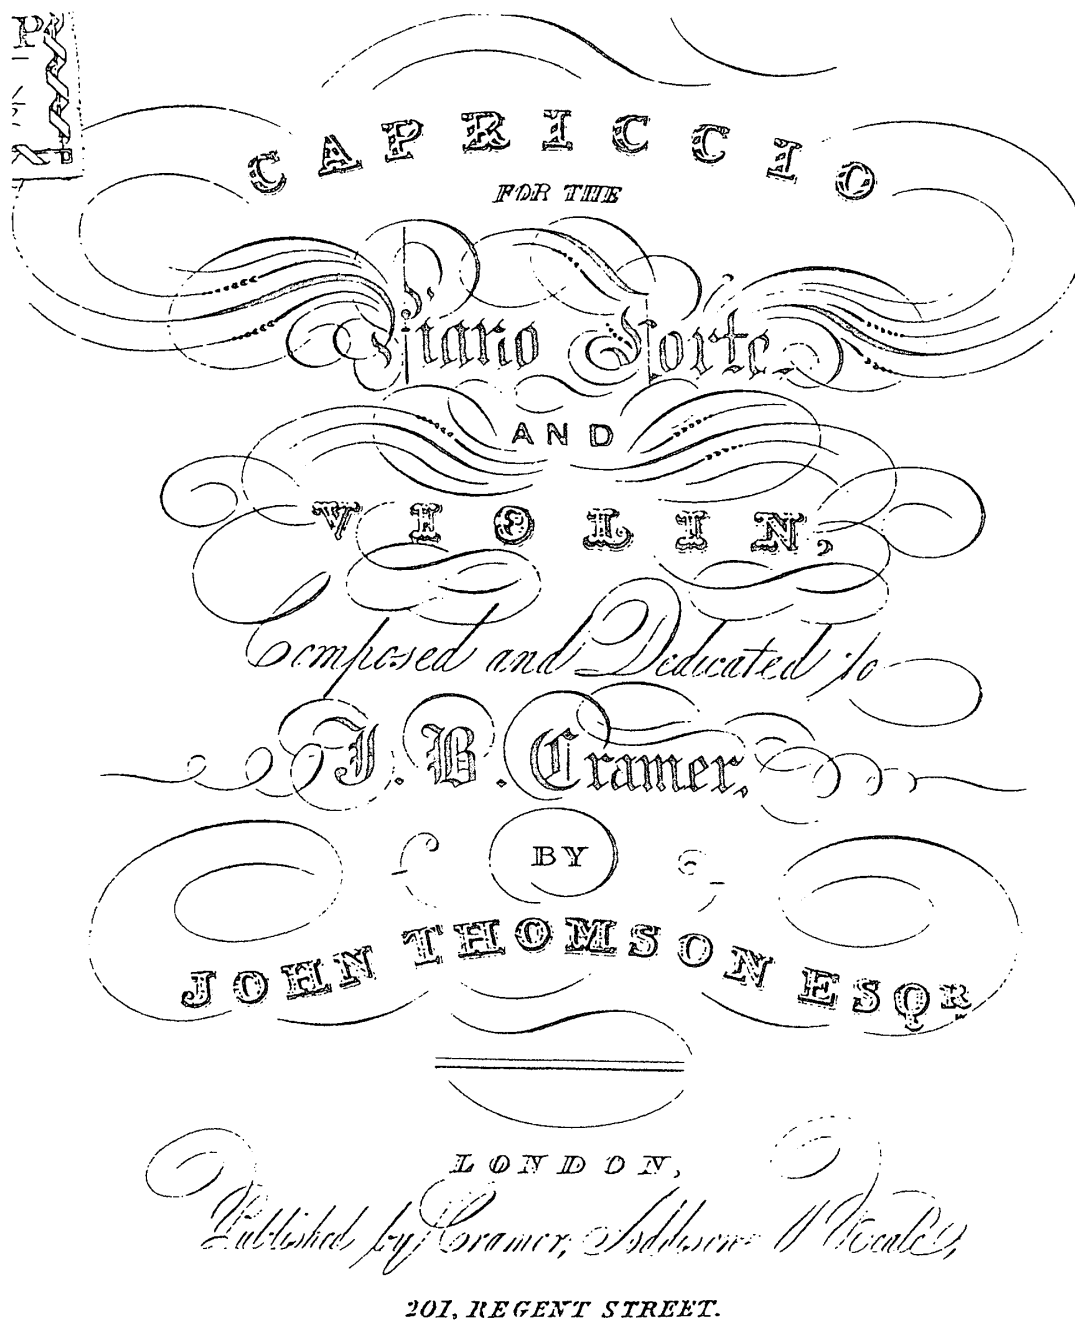 P
CAPRICCIO
FOR THE
Piano Forte
AND
VIOLIN,
Composed and Dedicated to
J. B. Cramer,
BY
JOHN THOMSON ESQR
LONDON,
Published by Cramer, Addison & Beale,
201, REGENT STREET.